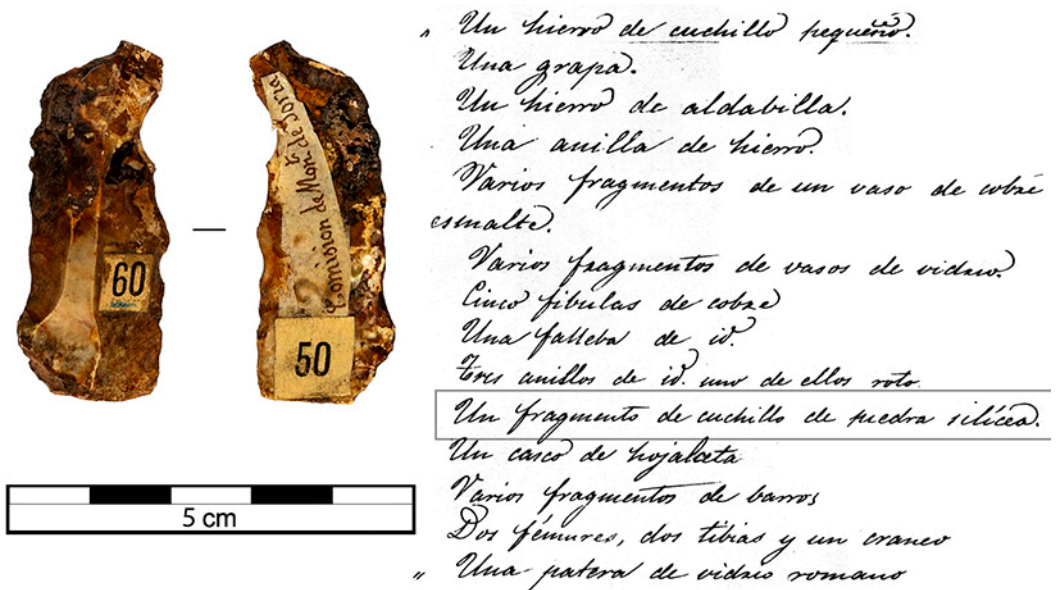 60
Comision de Mon.ᵗ de Soria
50
5 cm
" Un hierro de cuchillo pequeño.
Una grapa.
Un hierro de aldabilla.
Una anilla de hierro.
Varios fragmentos de un vaso de cobre
esmalte.
Varios fragmentos de vasos de vidrio.
Cinco fibulas de cobre
Una falleba de id.
Tres anillos de id. uno de ellos roto.
Un fragmento de cuchillo de piedra silícea.
Un casco de hojalata
Varios fragmentos de barros
Dos fémures, dos tibias y un craneo
" Una patera de vidrio romano